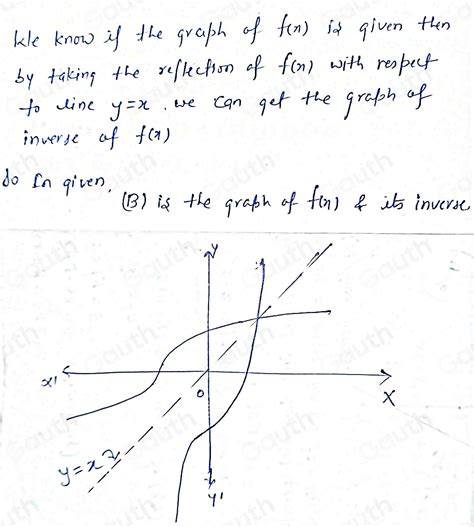 We know if the graph of f(x) is given then
by taking the reflection of f(x) with respect
to line y=x, we can get the graph of
inverse of f(x)
So In given,
(B) is the graph of f(x) & its inverse
y
x'
0
X
y=x
y'